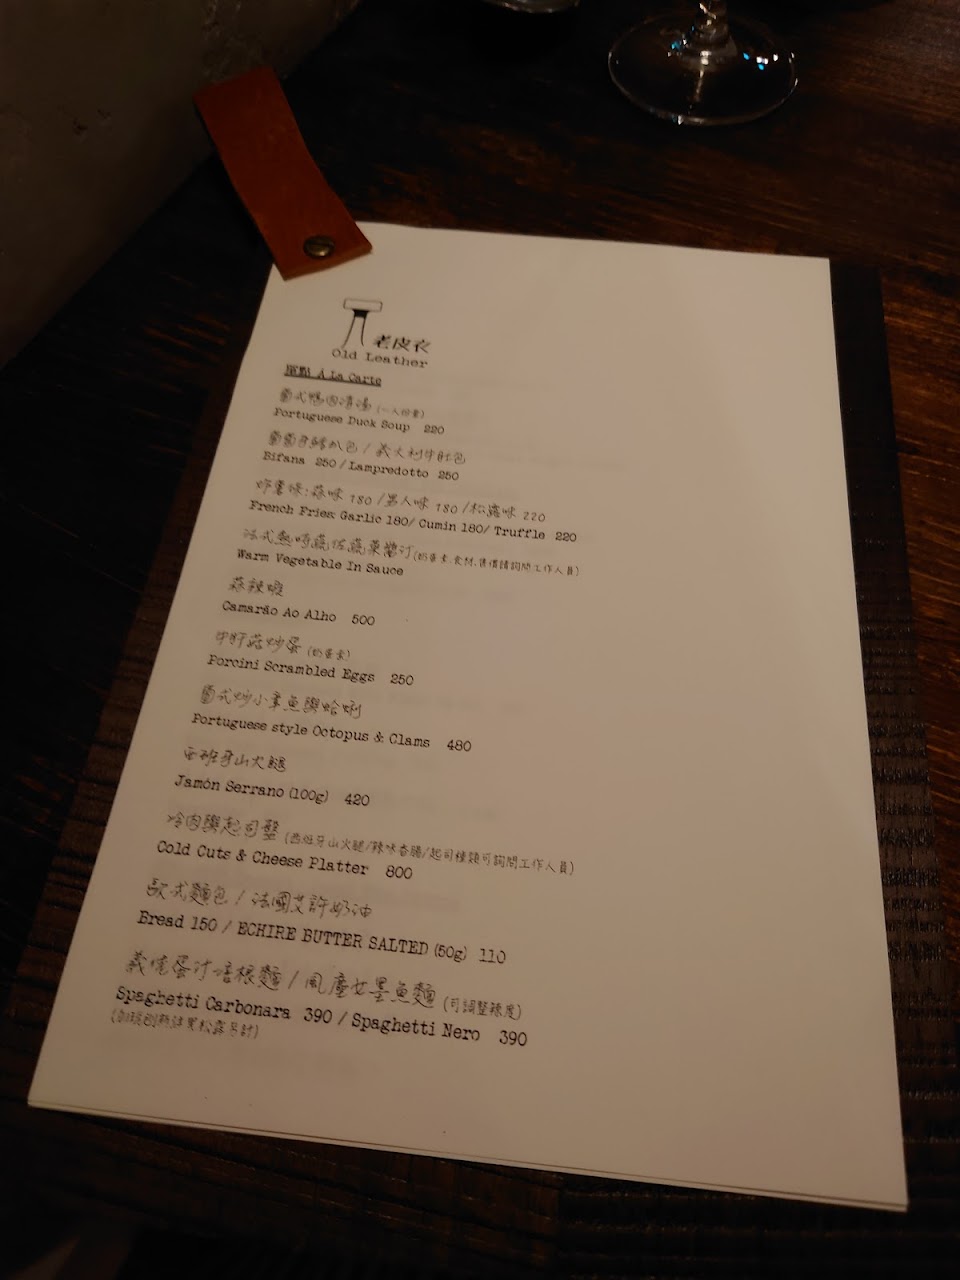 老皮衣
Old Leather
單點 À La Carte
葡式鴨肉清湯 (一人份量)
Portuguese Duck Soup 220
葡萄牙豬扒包 / 義大利牛肚包
Bifana 250 / Lampredotto 250
炸薯條: 蒜味 180 / 男人味 180 / 松露味 220
French Fries Garlic 180/ Cumin 180/ Truffle 220
法式熱時蔬佐蔬果醬汁 (奶蛋素.食材.售價請詢問工作人員)
Warm Vegetable In Sauce
蒜辣蝦
Camarão Ao Alho 500
牛肝菇炒蛋 (奶蛋素)
Porcini Scrambled Eggs 250
葡式炒小章魚與蛤蜊
Portuguese style Octopus & Clams 480
西班牙山火腿
Jamón Serrano (100g) 420
冷肉與起司盤 (西班牙山火腿/辣味香腸/起司種類可詢問工作人員)
Cold Cuts & Cheese Platter 800
歐式麵包 / 法國艾許奶油
Bread 150 / ECHIRE BUTTER SALTED (50g) 110
義境蛋汁培根麵 / 風塵女墨魚麵 (可調整辣度)
Spaghetti Carbonara 390 / Spaghetti Nero 390
(加現刨新鮮黑松露另計)